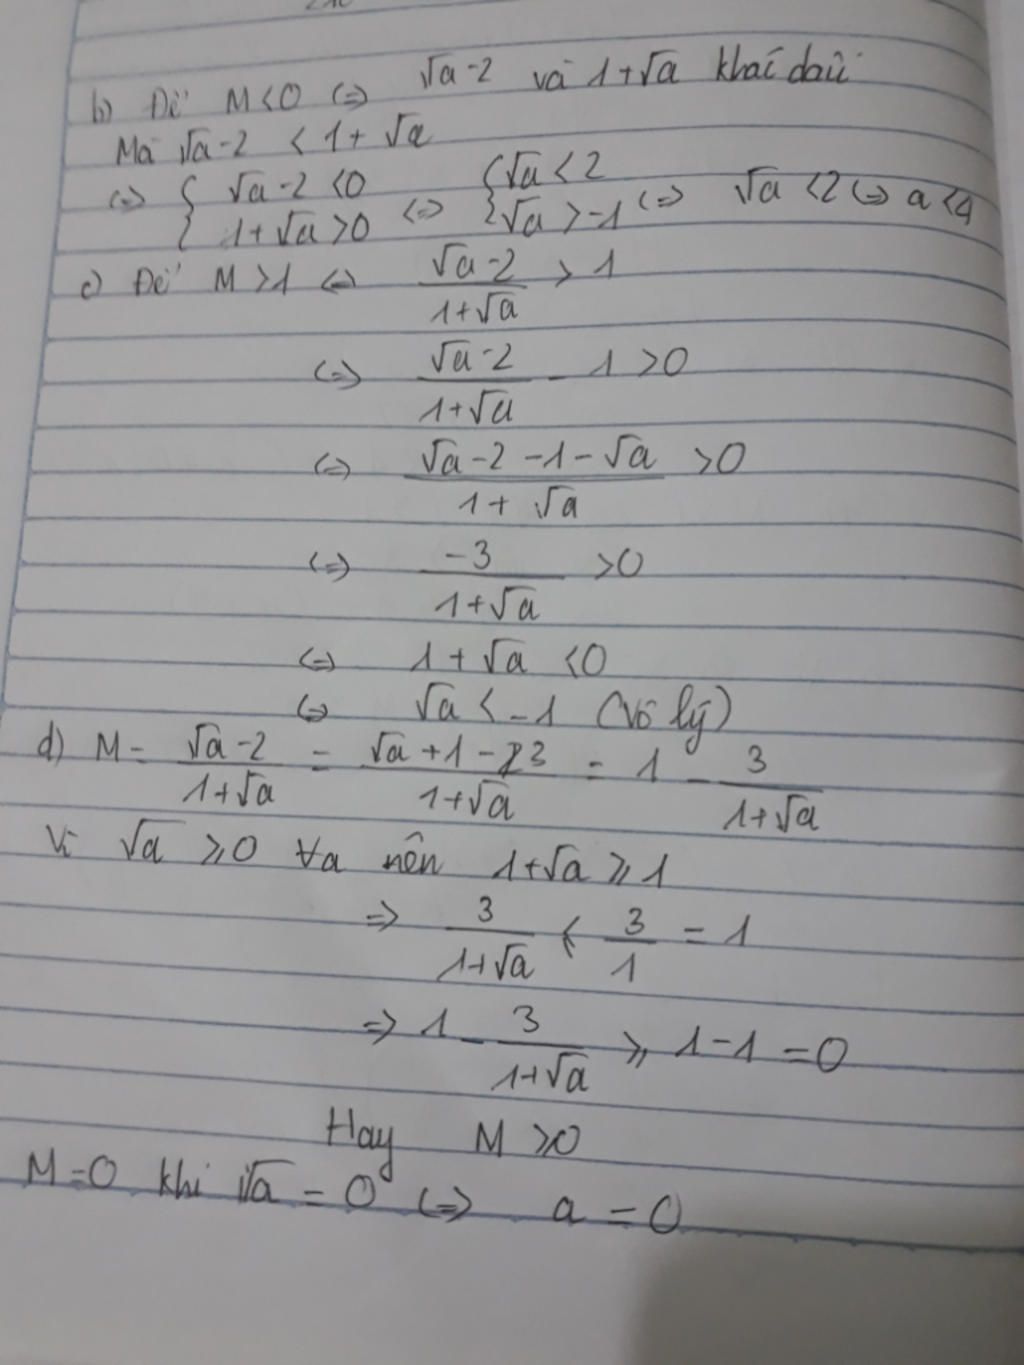 b) Để M<0 (=) √a-2 và 1+√a khác dấu
Mà √a-2 < 1+√a
(=) { √a-2 <0 (=) { √a < 2 (=) √a <2 (=) a <4
{ 1+√a >0 { √a >-1
c) Để M >1 (=) (√a-2)/(1+√a) > 1
(=) (√a-2)/(1+√a) - 1 >0
(=) (√a-2 -1-√a)/(1+√a) >0
(=) -3/(1+√a) >0
(=) 1+√a <0
(=) √a < -1 (Vô lý)
d) M = (√a-2)/(1+√a) = (√a+1-3)/(1+√a) = 1 - 3/(1+√a)
Vì √a ≥0 ∀a nên 1+√a ≥ 1
=> 3/(1+√a) ≤ 3/1 = 1
=> 1 - 3/(1+√a) ≥ 1-1 =0
Hay M ≥0
M=0 khi √a = 0 (=) a = 0